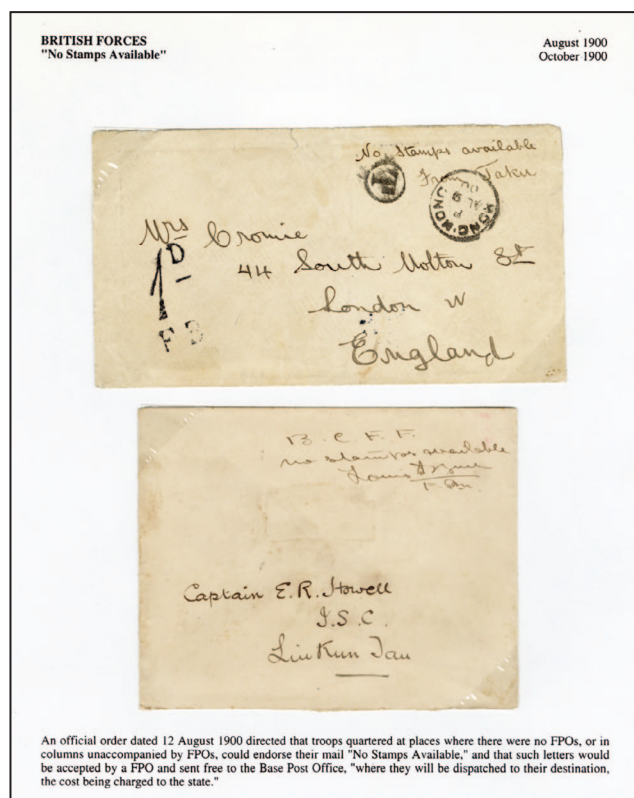 BRITISH FORCES
"No Stamps Available"
August 1900
October 1900
No Stamps available
From Taku
T
HONG-KONG
Mrs Cromie
44 South Molton St
London W
England
1D
B.C.F.F.
no stamps available
Captain E.R. Howell
I.S.C.
Liu Kun Tau
An official order dated 12 August 1900 directed that troops quartered at places where there were no FPOs, or in
columns unaccompanied by FPOs, could endorse their mail "No Stamps Available," and that such letters would
be accepted by a FPO and sent free to the Base Post Office, "where they will be dispatched to their destination,
the cost being charged to the state."